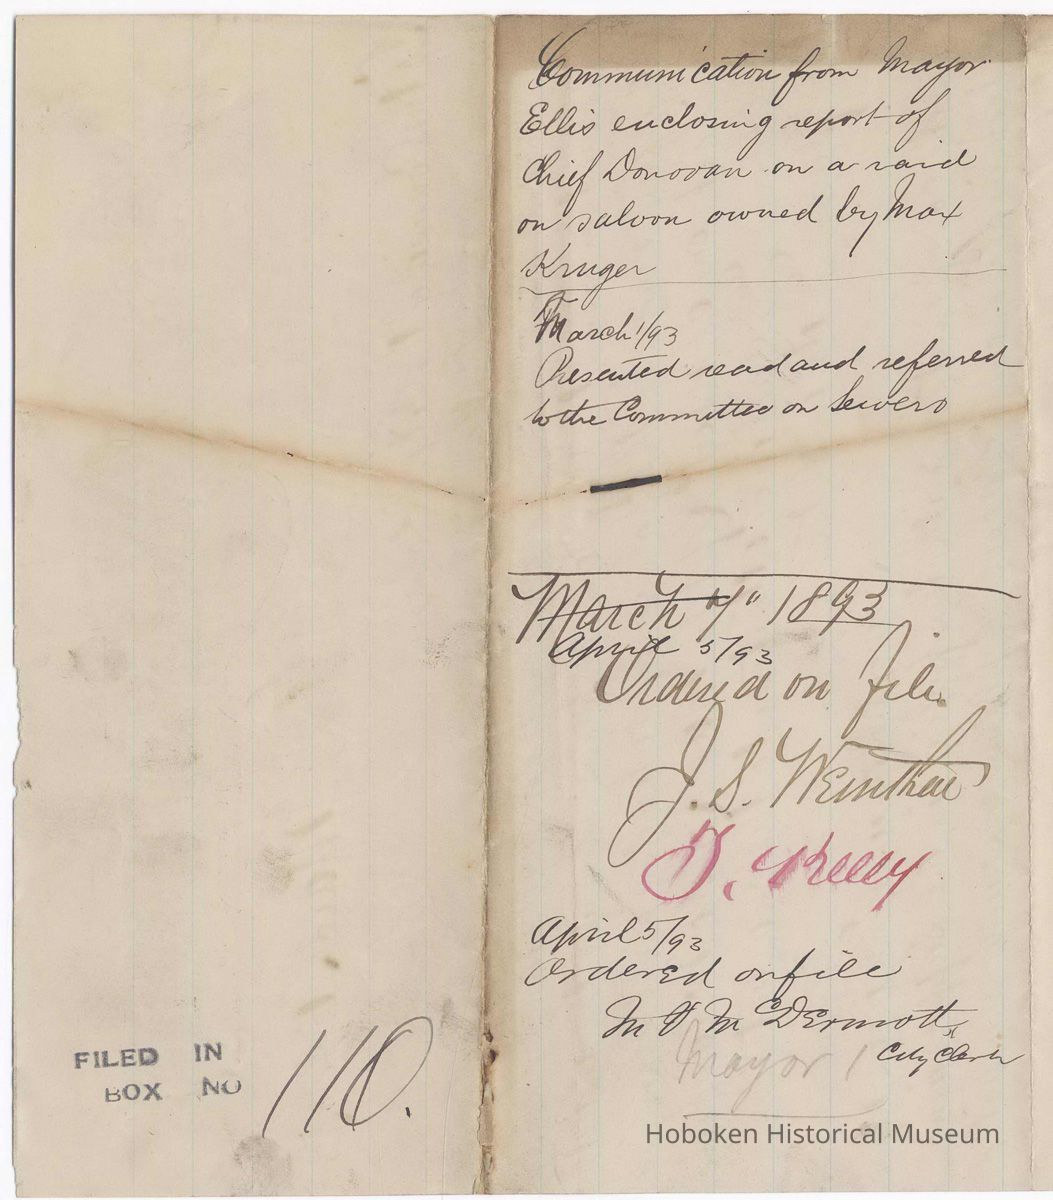 Communication from Mayor
Ellis enclosing report of
Chief Donovan on a raid
on saloon owned by Max
Kruger
March 1/93
Presented read and referred
to the Committee on Sewers
March 7" 1893
April 5/93
Ordered on file
J. S. Weinthal
T. Kelly
April 5/93
Ordered on file
M V McDermott
City Clerk
Mayor 1
FILED IN
BOX NO 110.
Hoboken Historical Museum